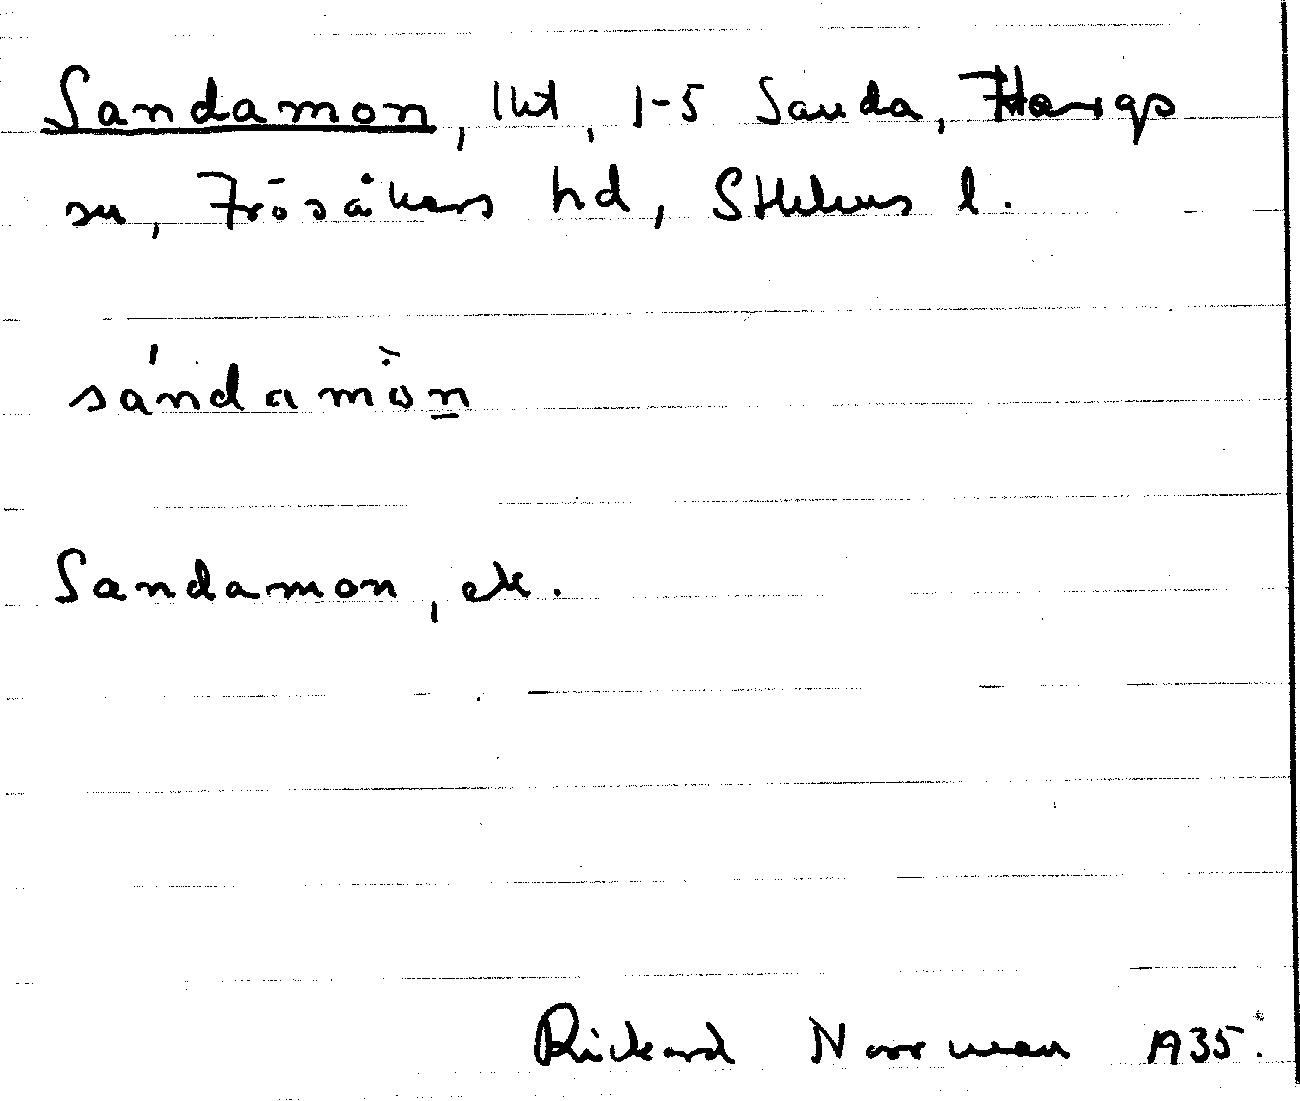 Sandamon, lht, 1-5 Sanda, Hargs
sn, Frösåkers hd, Sthlms l.
sándamòn
Sandamon, ek.
Rickard Norrman 1935.